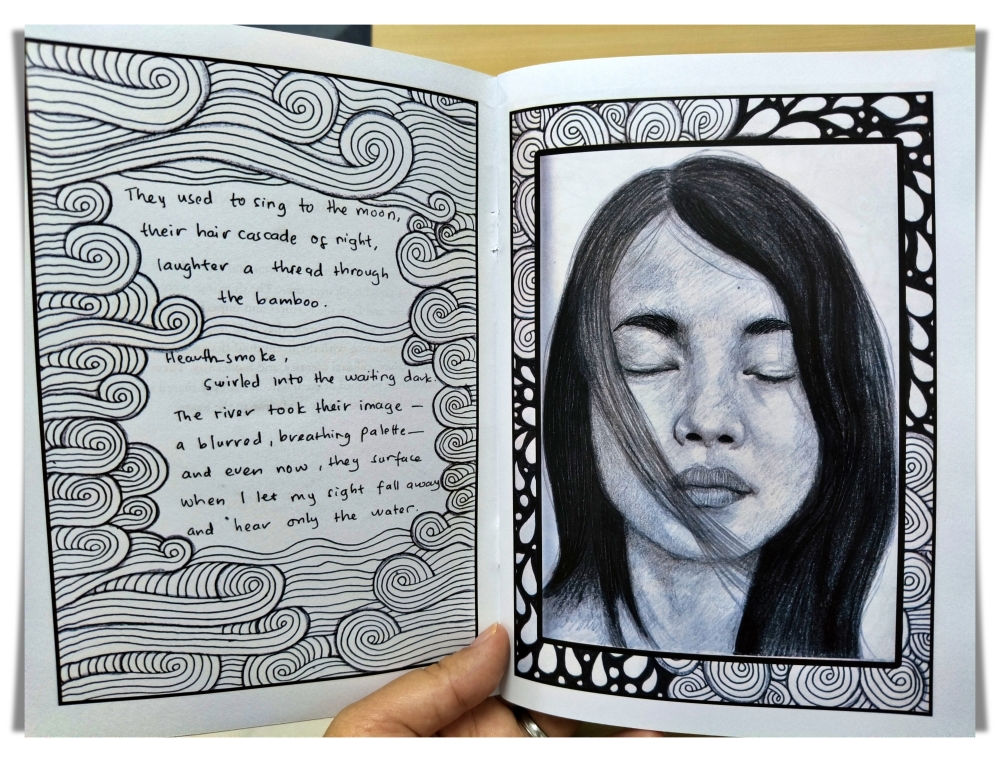 They used to sing to the moon,
their hair cascade of night,
laughter a thread through
the bamboo.
Hearth smoke,
swirled into the waiting dark.
The river took their image —
a blurred, breathing palette —
and even now, they surface
when I let my sight fall away
and hear only the water.